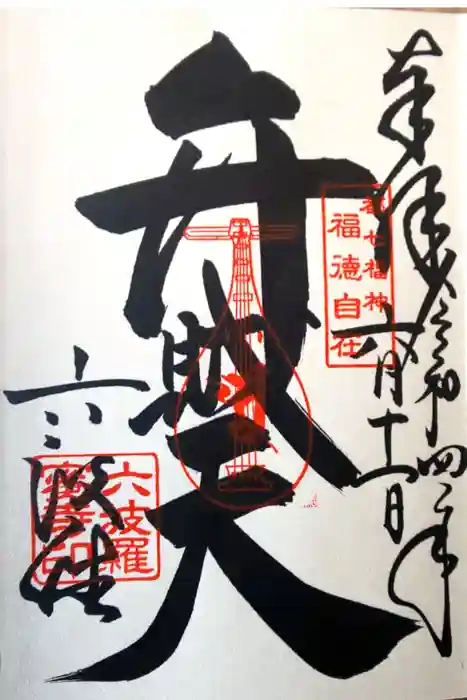 奉拝
令和四年
六月十一日
都七福神
福徳自在
弁財天
六波羅
密寺印
六波羅